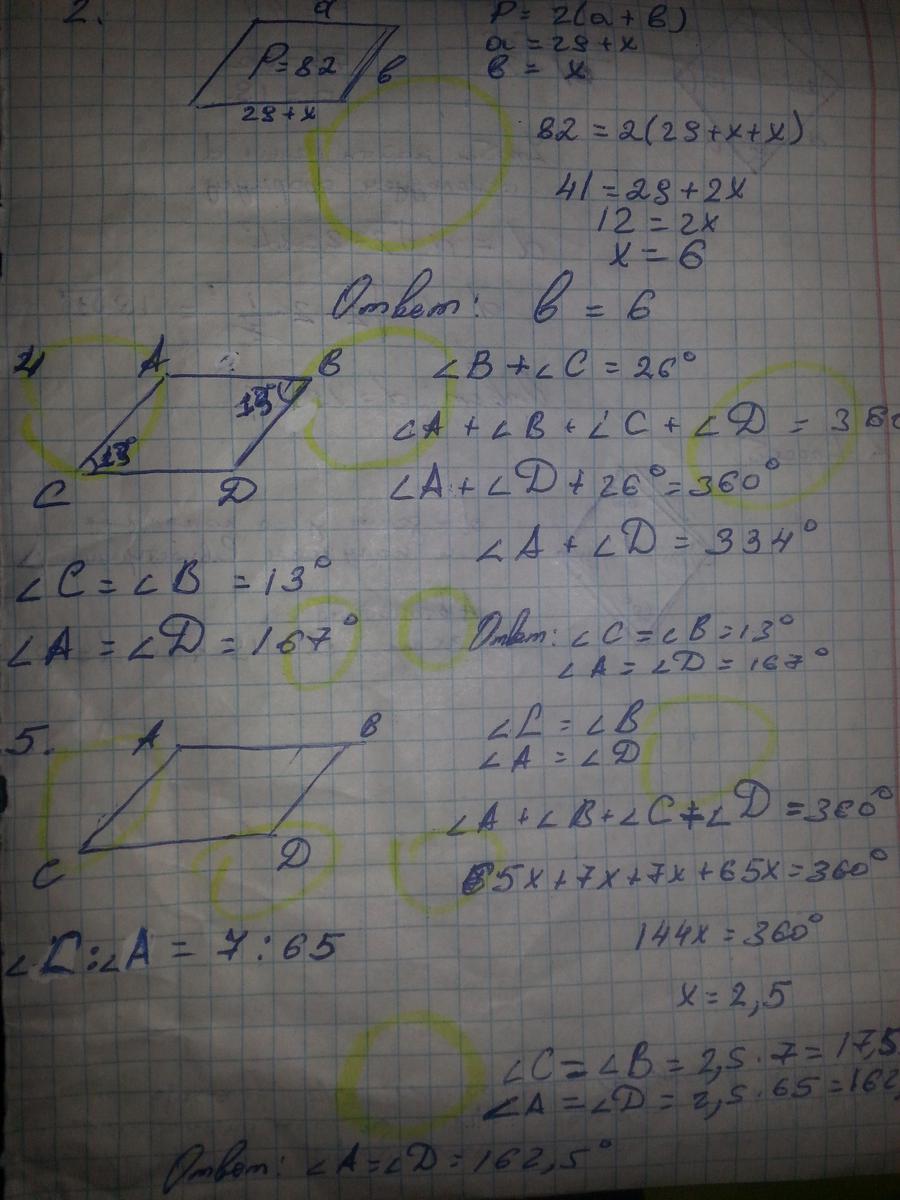 2.
a
P = 2(a + в)
P = 82
в
a = 29 + x
в = x
29 + x
82 = 2(29 + x + x)
41 = 29 + 2x
12 = 2x
x = 6
Ответ: в = 6
4
A
B
13°
13°
C
D
∠B + ∠C = 26°
∠A + ∠B + ∠C + ∠D = 360
∠A + ∠D + 26° = 360°
∠A + ∠D = 334°
∠C = ∠B = 13°
∠A = ∠D = 167°
Ответ: ∠C = ∠B = 13°
∠A = ∠D = 167°
5.
A
B
C
D
∠C = ∠B
∠A = ∠D
∠A + ∠B + ∠C + ∠D = 360°
65x + 7x + 7x + 65x = 360°
∠C : ∠A = 7 : 65
144x = 360°
x = 2,5
∠C = ∠B = 2,5 · 7 = 17,5
∠A = ∠D = 2,5 · 65 = 162,
Ответ: ∠A = ∠D = 162,5°